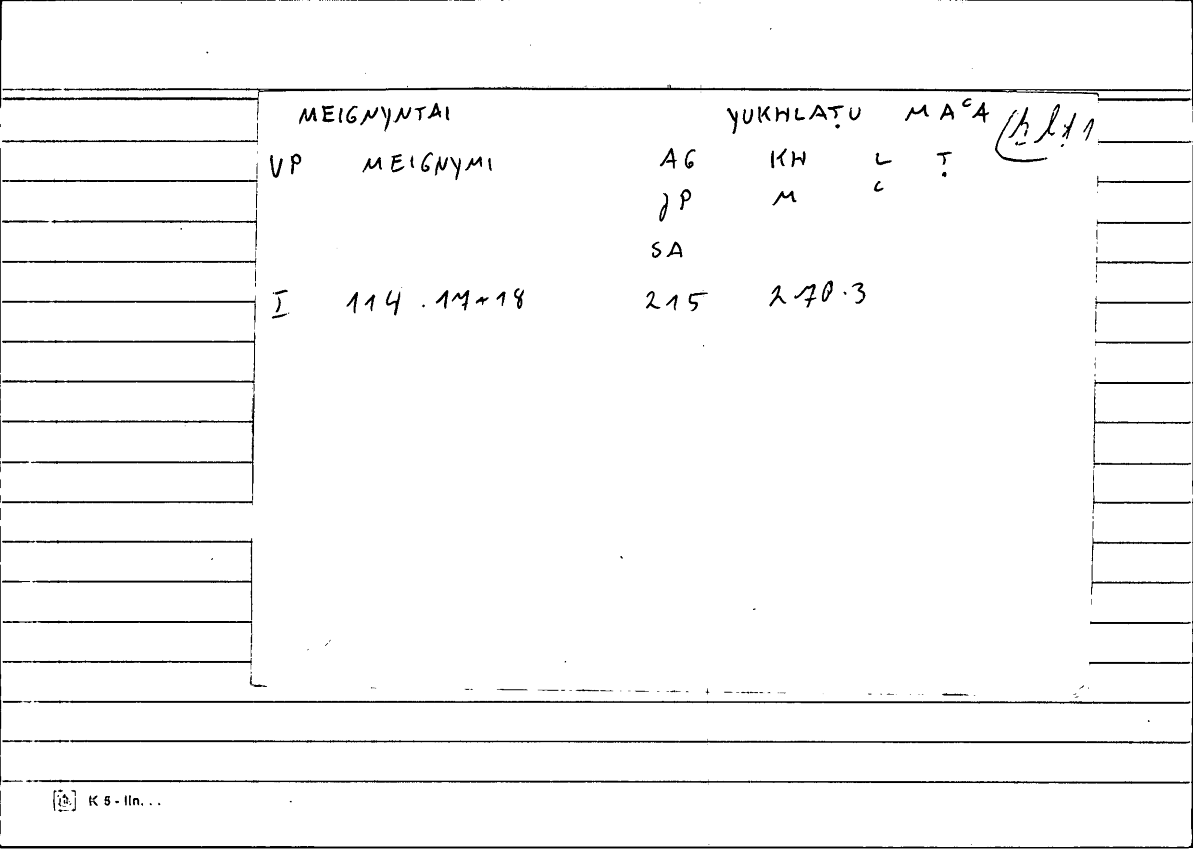 MEIGNYNTAI YUKHLAṬU MAᶜA ḫlṭ 1
VP MEIGNYMI AG KH L Ṭ
M ᶜ
SA
I 114.17+18 215 270.3
K 5 - lin...